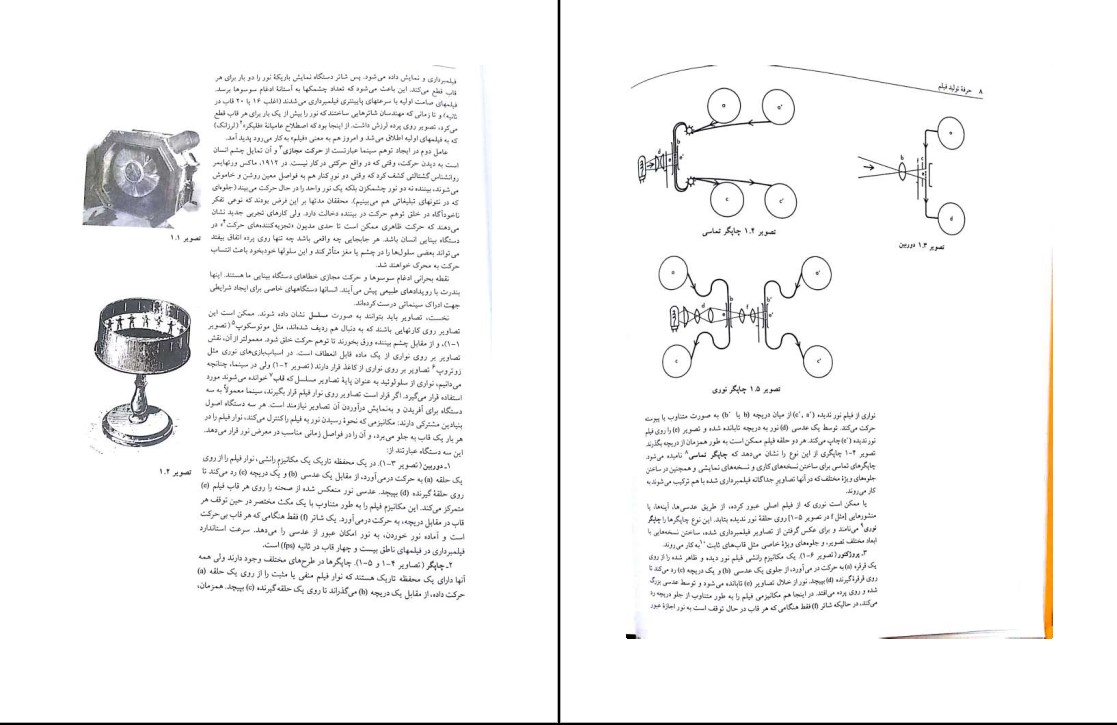 فیلمبرداری و نمایش داده می‌شود. پس شاتر دستگاه نمایش باریکهٔ نور را دو بار برای هر
قاب قطع می‌کند. این باعث می‌شود که تعداد چشمکها به آستانهٔ ادغام سوسوها برسد.
فیلمهای صامت اولیه با سرعتهای پایینتری فیلمبرداری می‌شدند (اغلب ۱۶ یا ۲۰ قاب در
ثانیه) و تا زمانی که مهندسان شاترهایی ساختند که نور را بیش از یک بار برای هر قاب قطع
می‌کرد، تصویر روی پرده لرزش داشت. از اینجا بود که اصطلاح عامیانهٔ «فلیکر»۲ (لرزانک)
که به فیلمهای اولیه اطلاق می‌شد و امروز هم به معنی «فیلم» به کار می‌رود پدید آمد.
عامل دوم در ایجاد توهم سینما عبارتست از حرکت مجازی۳ و آن تمایل چشم انسان
است به دیدن حرکت، وقتی که در واقع حرکتی در کار نیست. در ۱۹۱۲، ماکس ورتهایمر
روانشناس گشتالتی کشف کرد که وقتی دو نور کنار هم به فواصل معین روشن و خاموش
می‌شوند، بیننده نه دو نور چشمکزن بلکه یک نور واحد را در حال حرکت می‌بیند (جلوه‌ای
که در نئونهای تبلیغاتی هم می‌بینیم). محققان مدتها بر این فرض بودند که نوعی تفکر
ناخودآگاه در خلق توهم حرکت در بیننده دخالت دارد. ولی کارهای تجربی جدید نشان
می‌دهند که حرکت ظاهری ممکن است تا حدی مدیون «تجزیه‌کننده‌های حرکت»۴ در
دستگاه بینایی انسان باشد. هر جابجایی چه واقعی باشد چه تنها روی پرده اتفاق بیفتد
می‌تواند بعضی سلول‌ها را در چشم یا مغز متأثر کند و این سلولها خودبخود باعث انتساب
حرکت به محرک خواهند شد.
نقطه بحرانی ادغام سوسوها و حرکت مجازی خطاهای دستگاه بینایی ما هستند. اینها
بندرت با رویدادهای طبیعی پیش می‌آیند. انسانها دستگاههای خاصی برای ایجاد شرایطی
جهت ادراک سینمائی درست کرده‌اند.
نخست، تصاویر باید بتوانند به صورت مسلسل نشان داده شوند. ممکن است این
تصاویر روی کارتهایی باشند که به دنبال هم ردیف شده‌اند، مثل موتوسکوپ۵ (تصویر
۱-۱)، و از مقابل چشم بیننده ورق بخورند تا توهم حرکت خلق شود. معمولتر از آن، نقش
تصاویر بر روی نواری از یک ماده قابل انعطاف است. در اسباب‌بازی‌های نوری مثل
زوتروپ۶ تصاویر بر روی نواری از کاغذ قرار دارند (تصویر ۲-۱) ولی در سینما، چنانچه
می‌دانیم، نواری از سلولوئید به عنوان پایهٔ تصاویر مسلسل که قاب۷ خوانده می‌شوند مورد
استفاده قرار می‌گیرد. اگر قرار است تصاویر روی نوار فیلم قرار بگیرند، سینما معمولاً به سه
دستگاه برای آفریدن و به‌نمایش درآوردن آن تصاویر نیازمند است. هر سه دستگاه اصول
بنیادین مشترکی دارند: مکانیزمی که نحوهٔ رسیدن نور به فیلم را کنترل می‌کند، نوار فیلم را در
هر بار یک قاب به جلو می‌برد، و آن را در فواصل زمانی مناسب در معرض نور قرار می‌دهد.
این سه دستگاه عبارتند از:
۱ـ دوربین (تصویر ۳-۱). در یک محفظه تاریک یک مکانیزم رانشی، نوار فیلم را از روی
یک حلقه (a) به حرکت درمی‌آورد، از مقابل یک عدسی (b) و یک دریچه (c) رد می‌کند تا
روی حلقهٔ گیرنده (d) بپیچد. عدسی نور منعکس شده از صحنه را روی هر قاب فیلم (e)
متمرکز می‌کند. این مکانیزم فیلم را به طور متناوب با یک مکث مختصر در حین توقف هر
قاب در مقابل دریچه، به حرکت درمی‌آورد. یک شاتر (f) فقط هنگامی که هر قاب بی‌حرکت
است و آماده نور خوردن، به نور امکان عبور از عدسی را می‌دهد. سرعت استاندارد
فیلمبرداری در فیلمهای ناطق بیست و چهار قاب در ثانیه (fps) است.
۲ـ چاپگر (تصاویر ۴-۱ و ۵-۱). چاپگرها در طرح‌های مختلف وجود دارند ولی همه
آنها دارای یک محفظه تاریک هستند که نوار فیلم منفی یا مثبت را از روی یک حلقه (a)
حرکت داده، از مقابل یک دریچه (b) می‌گذراند تا روی یک حلقه گیرنده (c) بپیچد. همزمان،
تصویر ۱.۱
تصویر ۱.۲
۸ حرفهٔ تولید فیلم
تصویر ۱.۴ چاپگر تماسی
تصویر ۱.۳ دوربین
تصویر ۱.۵ چاپگر نوری
نواری از فیلم نور ندیده (a', c') از میان دریچه (b یا b') به صورت متناوب یا پیوسته
حرکت می‌کند. توسط یک عدسی (d) نور به دریچه تابانده شده و تصویر (e) را روی فیلم
نورندیده (e') چاپ می‌کند. هر دو حلقه فیلم ممکن است به طور همزمان از دریچه بگذرند.
تصویر ۴-۱ چاپگری از این نوع را نشان می‌دهد که چاپگر تماسی۸ نامیده می‌شود.
چاپگرهای تماسی برای ساختن نسخه‌های کاری و نسخه‌های نمایشی و همچنین در ساختن
جلوه‌های ویژهٔ مختلف که در آنها تصاویر جداگانه فیلمبرداری شده با هم ترکیب می‌شوند به
کار می‌روند.
یا ممکن است نوری که از فیلم اصلی عبور کرده، از طریق عدسی‌ها، آینه‌ها، یا
منشورهایی [مثل f در تصویر ۵-۱] روی حلقهٔ نور ندیده بتابد. این نوع چاپگرها را چاپگر
نوری۹ می‌نامند و برای عکس گرفتن از تصاویر فیلمبرداری شده، ساختن نسخه‌هایی با
ابعاد مختلف تصویر، و جلوه‌های ویژهٔ خاصی مثل قاب‌های ثابت۱۰ به کار می‌روند.
۳ـ پروژکتور (تصویر ۶-۱). یک مکانیزم رانشی فیلم نور دیده و ظاهر شده را از روی
یک قرقره (a) به حرکت در می‌آورد، از جلوی یک عدسی (b) و یک دریچه (c) رد می‌کند تا
روی قرقرهٔ گیرنده (d) بپیچد. نور از خلال تصاویر (e) تابانده می‌شود و توسط عدسی بزرگ
شده و روی پرده می‌افتد. در اینجا هم مکانیزمی فیلم را به طور متناوب از جلو دریچه رد
می‌کند، در حالیکه شاتر (f) فقط هنگامی که هر قاب در حال توقف است به نور اجازهٔ عبور